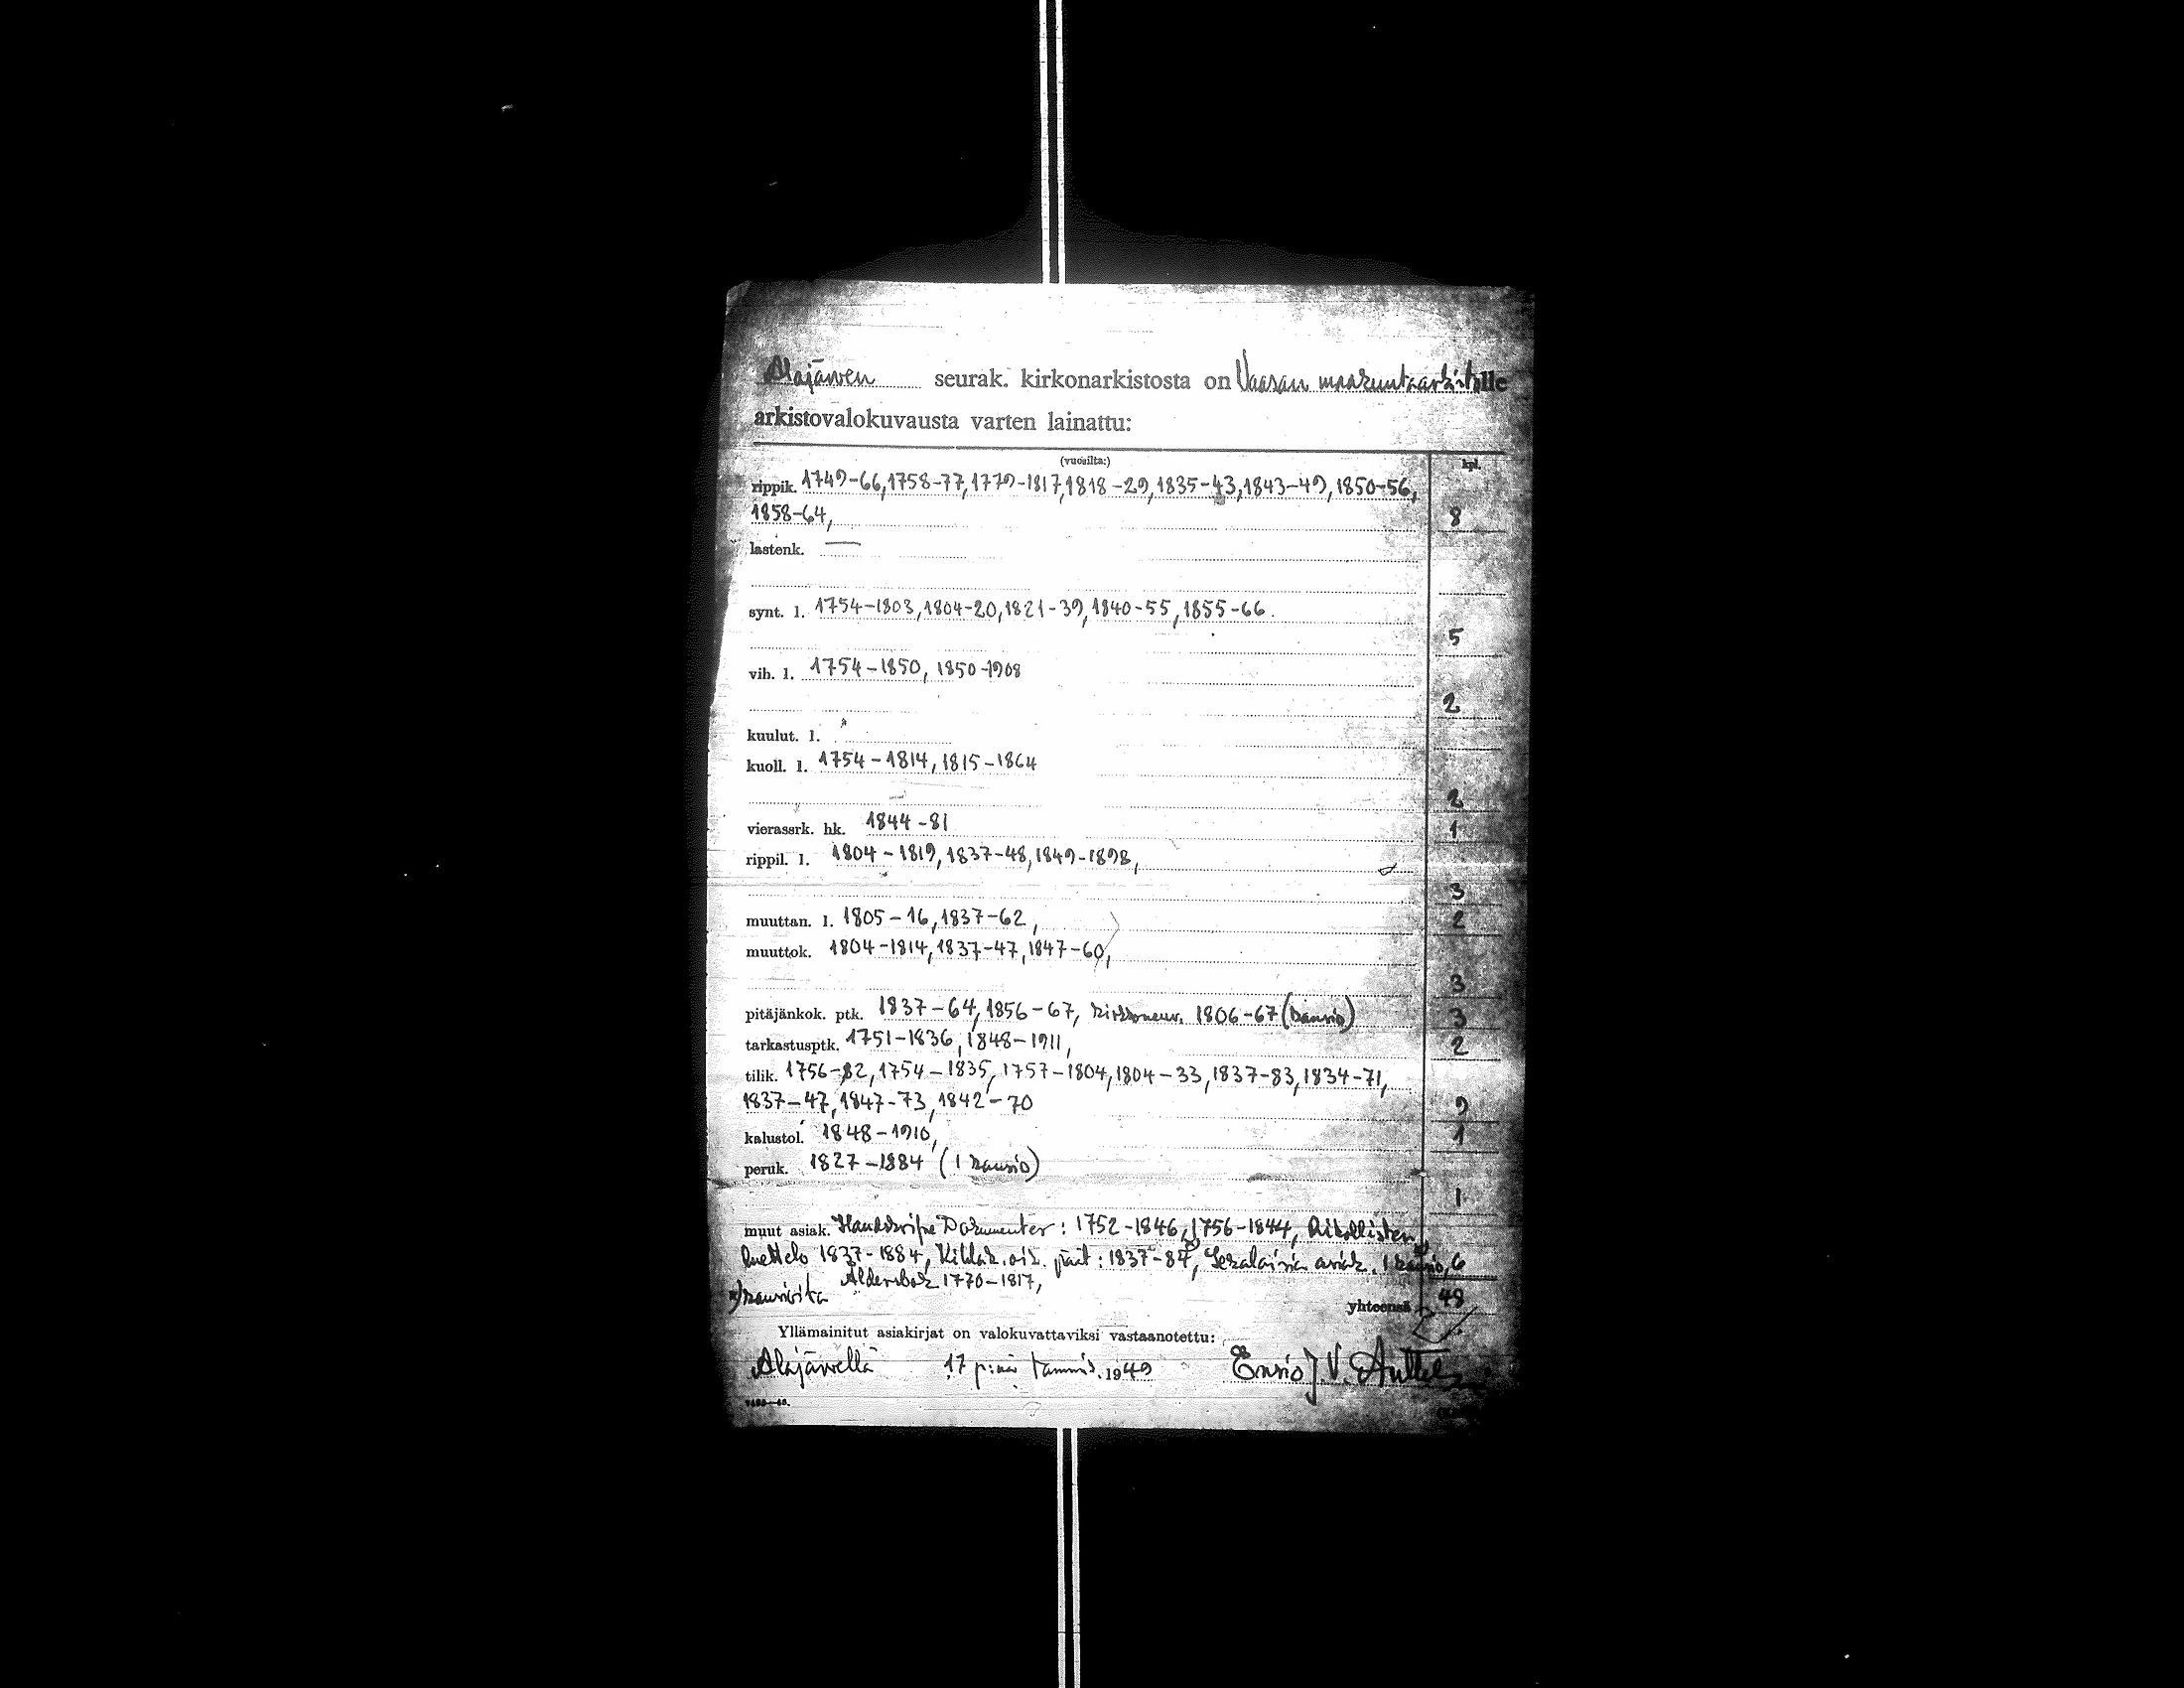 Alajärven seurak. kirkonarkistosta on Vaasan maakuntaarkistolle
arkistovalokuvausta varten lainattu:
(vuosilta:) kpl.
rippik. 1749-66, 1758-77, 1779-1817, 1818-29, 1835-43, 1843-49, 1850-56,
1858-64, 8
lastenk. —
synt. l. 1754-1803, 1804-20, 1821-39, 1840-55, 1855-66.
5
vih. l. 1754-1850, 1850-1908
2
kuulut. l.
kuoll. l. 1754-1814, 1815-1864
2
vierassrk. hk. 1844-81 1
rippil. l. 1804-1819, 1837-48, 1849-1898,
3
muuttan. l. 1805-16, 1837-62, 2
muuttok. 1804-1814, 1837-47, 1847-60,
3
pitäjänkok. ptk. 1837-64, 1856-67, kirkkoneuv. 1806-67 (kansio) 3
tarkastusptk. 1751-1836, 1848-1911, 2
tilik. 1756-82, 1754-1835, 1757-1804, 1804-33, 1837-83, 1834-71,
1837-47, 1847-73, 1842-70 9
kalustol. 1848-1910, 1
peruk. 1827-1884 (1 kansio)
1
muut asiak. Handskrifne Dokumenter: 1752-1846, 1756-1844, Rikollisten
luettelo 1837-1884, Kihlak. oik. päät: 1837-84, Sekalaisia asiak. 1 kansio, 6
Åldersbok 1770-1817,
x) kansioita
yhteensä 48
Yllämainitut asiakirjat on valokuvattaviksi vastaanotettu:
Alajärvellä 17 p:nä tammik. 1949 Ensio J. V.